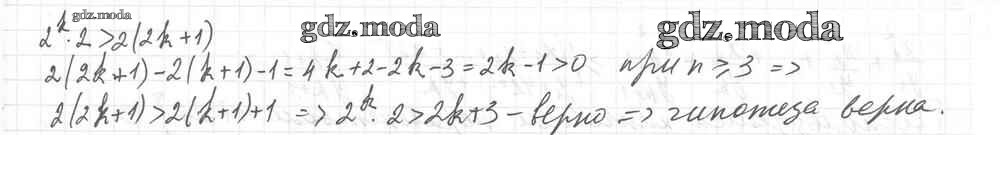 gdz.moda
gdz.moda
gdz.moda
2^k · 2 > 2(2k+1)
2(2k+1) - 2(k+1) - 1 = 4k + 2 - 2k - 3 = 2k - 1 > 0 при n ⩾ 3 =>
2(2k+1) > 2(k+1) + 1 => 2^k · 2 > 2k + 3 - верно => гипотеза верна.